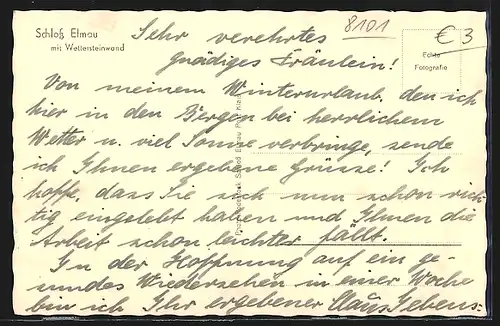 Schloß Elmau
mit Wettersteinwand
8101
€ 3
Echte
Fotografie
Sehr verehrtes
gnädiges Fräulein!
Von meinem Winterurlaub, den ich
hier in den Bergen bei herrlichem
Wetter u. viel Sonne verbringe, sende
ich Ihnen ergebene Grüsse! Ich
hoffe, dass Sie sich nun schon rich-
tig eingelebt haben und Ihnen die
Arbeit schon leichter fällt.
In der Hoffnung auf ein ge-
sundes Wiedersehen in einer Woche
bin ich Ihr ergebener Claus